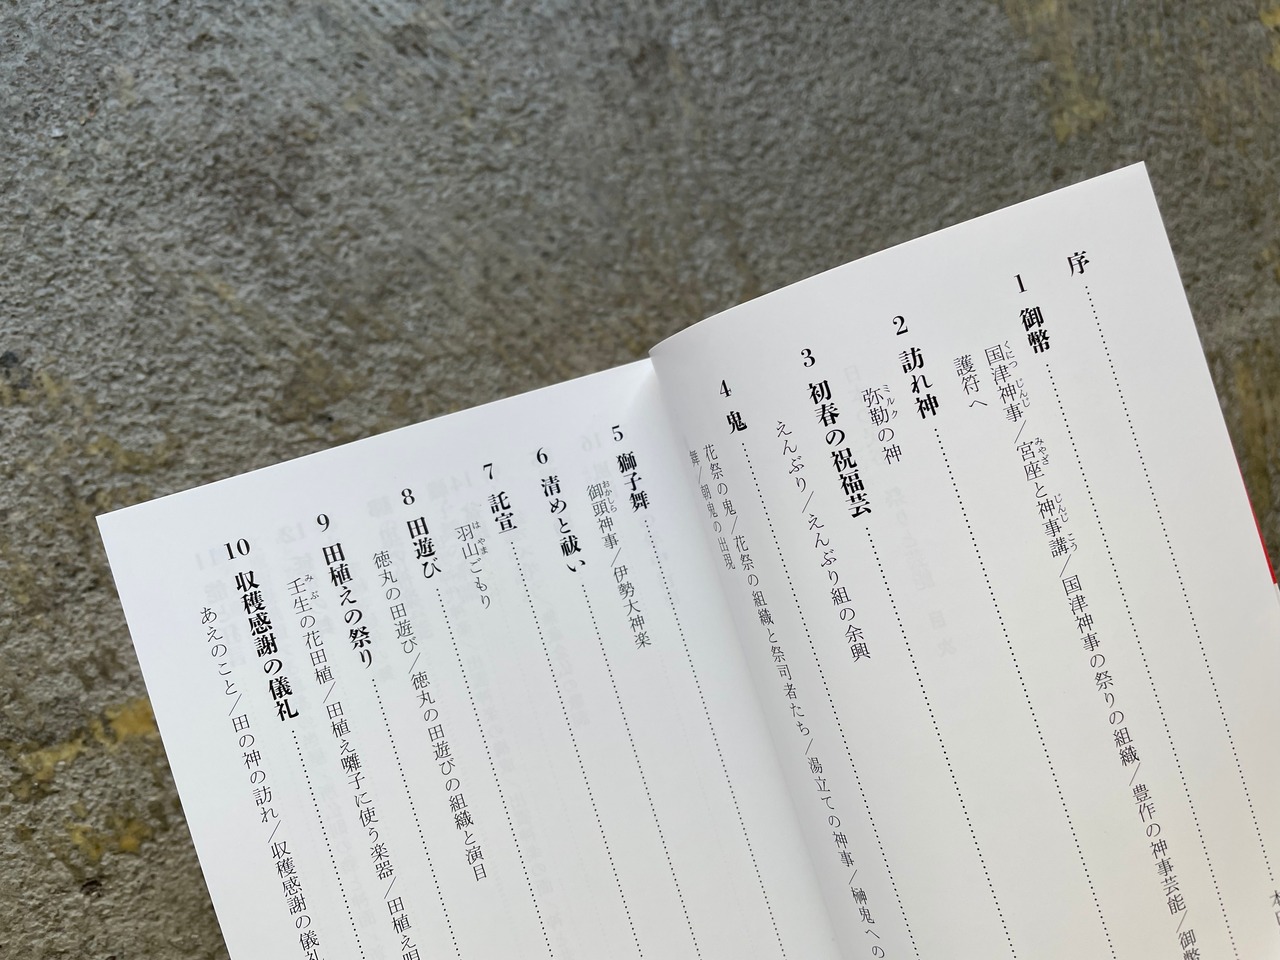 序
1 御幣
国津神事／宮座と神事講／国津神事の祭りの組織／豊作の神事芸能／御幣
護符へ
2 訪れ神
弥勒の神
3 初春の祝福芸
えんぶり／えんぶり組の余興
4 鬼
花祭の鬼／花祭の組織と祭司者たち／湯立ての神事／榊鬼への
舞／朝鬼の出現
5 獅子舞
御頭神事／伊勢大神楽
6 清めと祓い
7 託宣
羽山ごもり
8 田遊び
徳丸の田遊び／徳丸の田遊びの組織と演目
9 田植えの祭り
壬生の花田植／田植え囃子に使う楽器／田植え唄
10 収穫感謝の儀礼
あえのこと／田の神の訪れ／収穫感謝の儀礼